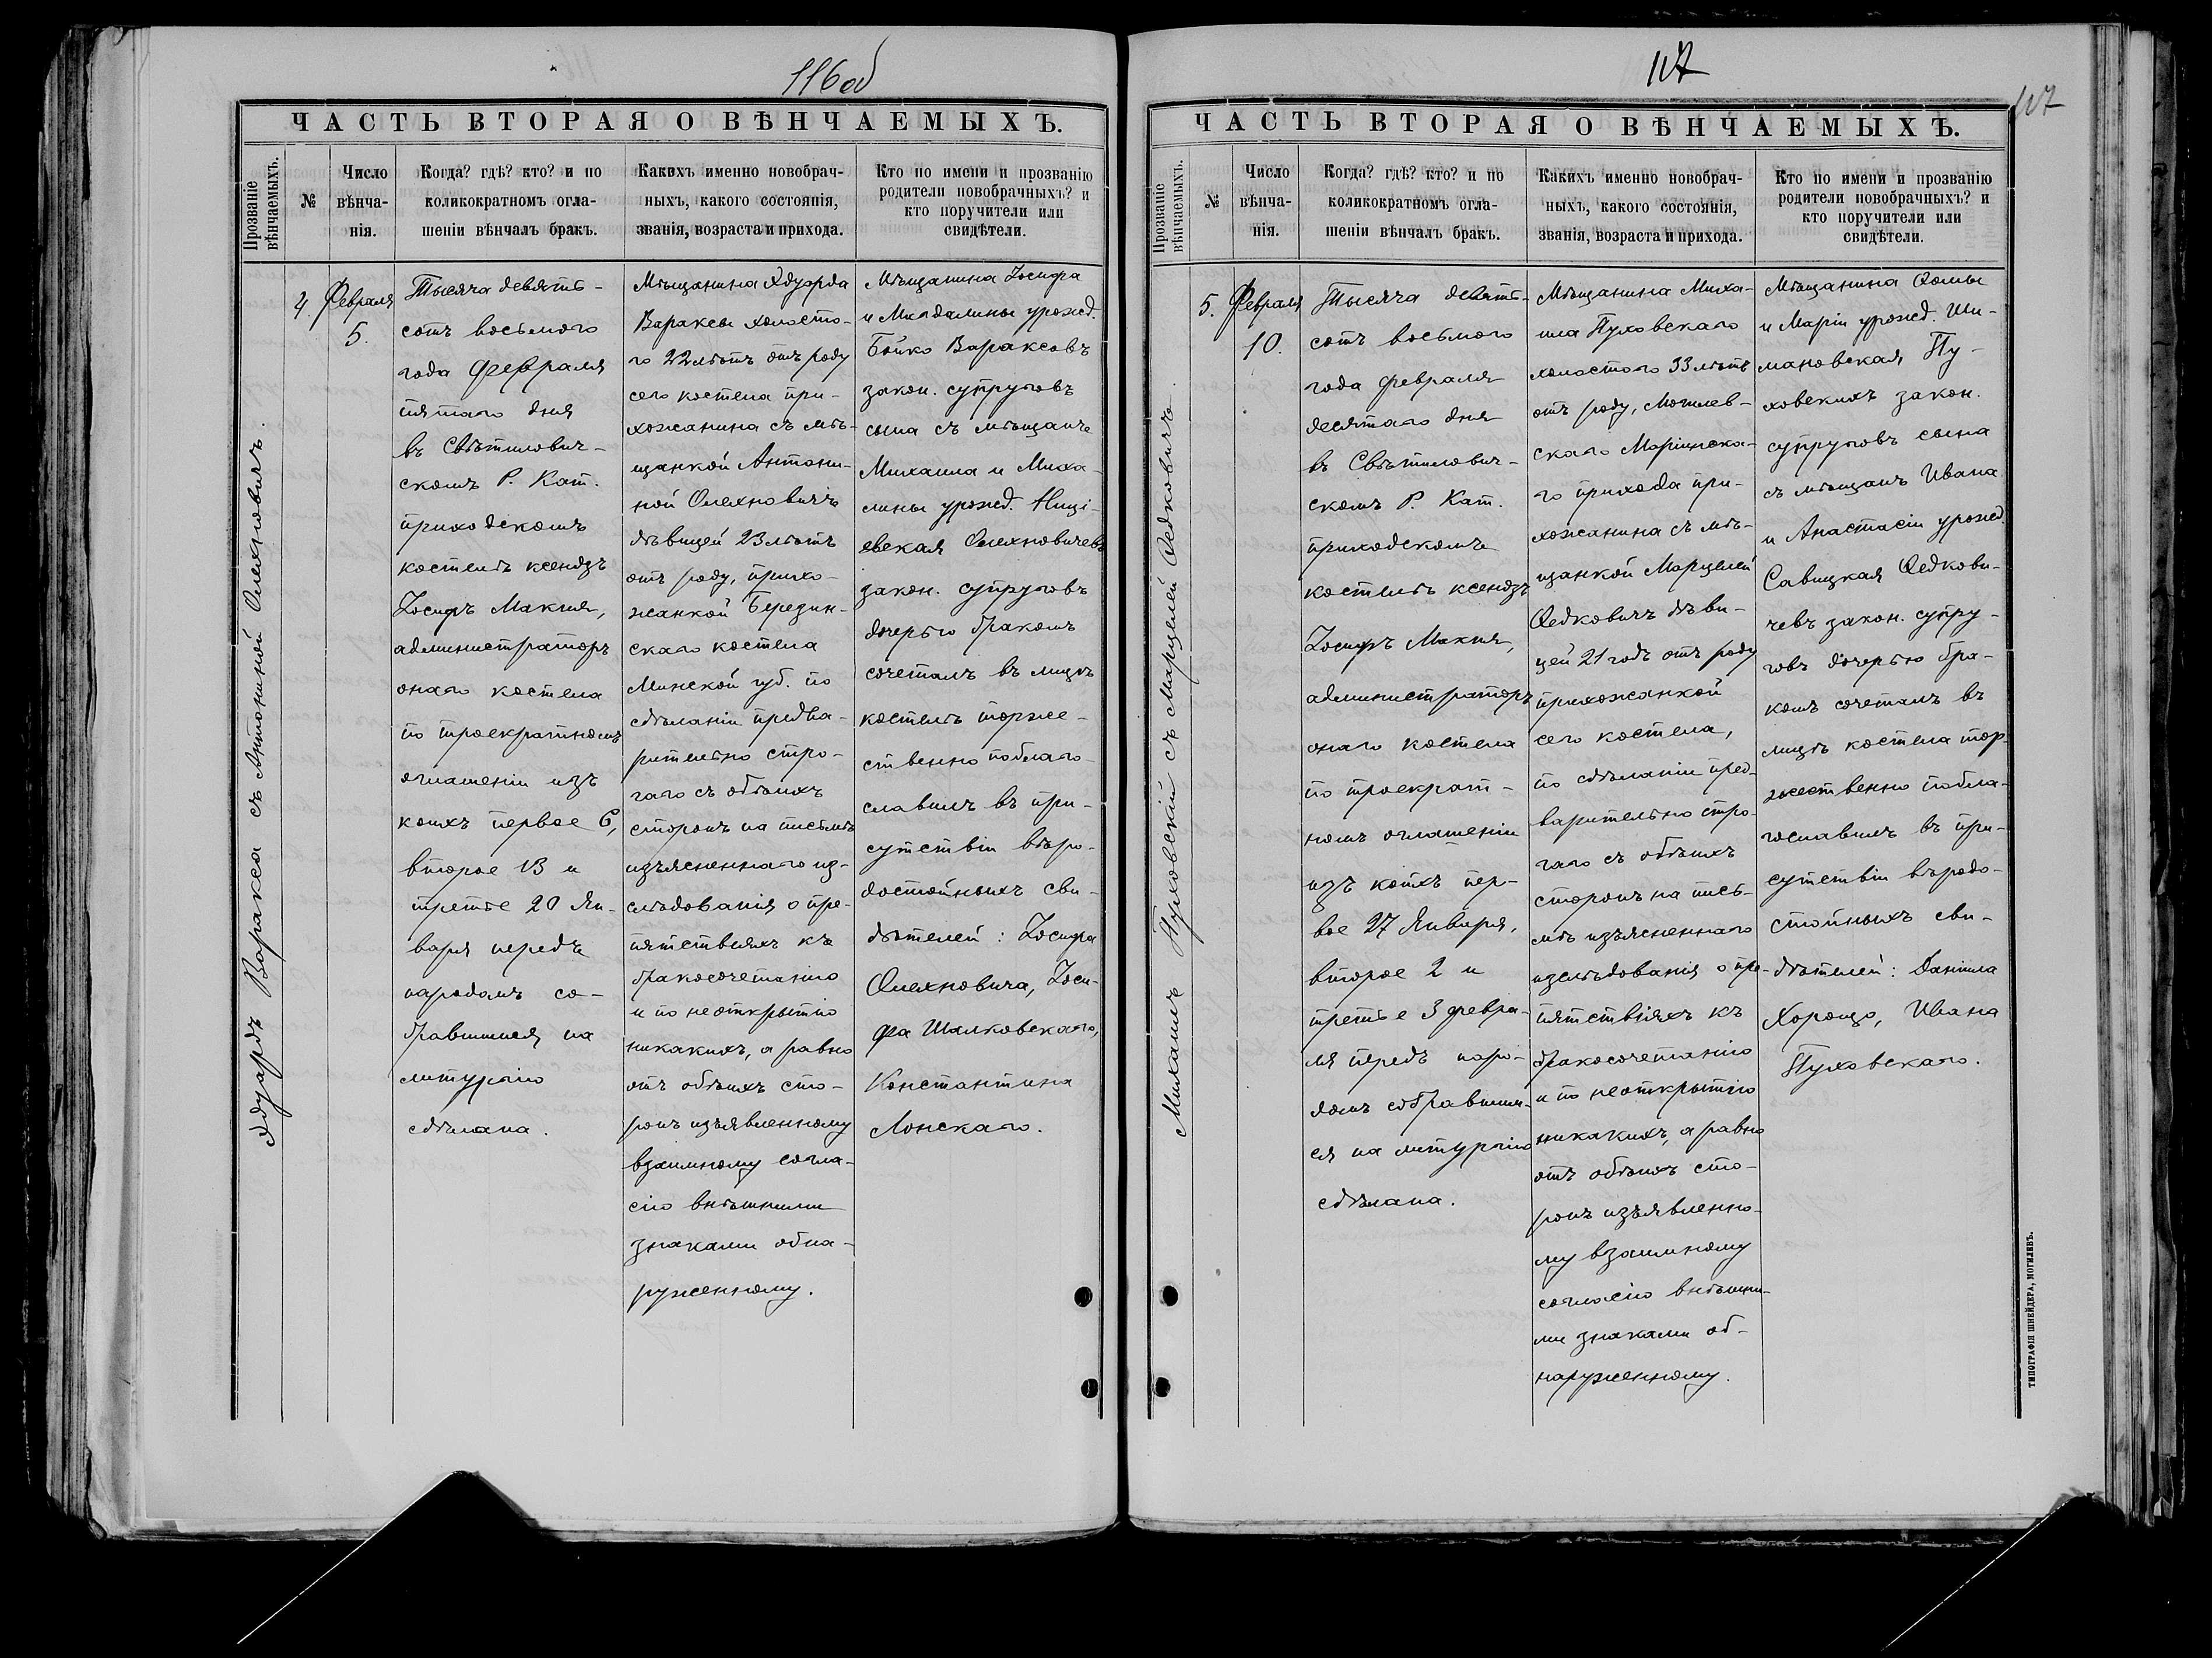 116об
ЧАСТЬ ВТОРАЯ О ВѢНЧАЕМЫХЪ.
Прозваніе
вѣнчаемыхъ.
№
Число
вѣнча-
нія.
Когда? гдѣ? кто? и по
коликократномъ огла-
шеніи вѣнчалъ бракъ.
Какихъ именно новобрач-
ныхъ, какого состоянія,
званія, возраста и прихода.
Кто по имени и прозванію
родители новобрачныхъ? и
кто поручители или
свидѣтели.
Эдуардъ Варакса съ Антониной Олехновичъ.
4.
Февраля
5.
Тысяча девять-
сотъ восьмого
года Февраля
пятаго дня
въ Свѣтилович-
скомъ Р. Кат.
приходскомъ
костелѣ ксендзъ
Іосифъ Макня,
администраторъ
онаго костела
по троекратномъ
оглашеніи изъ
коихъ первое 6,
второе 13 и
третье 20 Ян-
варя передъ
народомъ со-
бравшимся на
литургію
сдѣлана.
Мѣщанина Эдуарда
Вараксы холосто-
го 22 лѣтъ отъ роду
сего костела при-
хожанина съ мѣ-
щанкой Антони-
ной Олехновичъ
дѣвицей 23 лѣтъ
отъ роду, прихо-
жанкой Березин-
скаго костела
Минской губ. по
сдѣланіи предва-
рительно стро-
гаго съ обѣихъ
сторонъ на письмѣ
изъясненнаго из-
слѣдованія о пре-
пятствіяхъ къ
бракосочетанію
и по неоткрытію
никакихъ, а равно
отъ обѣихъ сто-
ронъ изъявленному
взаимному согла-
сію внѣшними
знаками обна-
руженному.
Мѣщанина Іосифа
и Магдалины урожд.
Бойко Вараксовъ
закон. супруговъ
сына съ мѣщанъ
Михаила и Миха-
лины урожд. Ниці-
евская Олехновичевъ
закон. супруговъ
дочерью бракомъ
сочеталъ въ лицѣ
костелѣ торже-
ственно поблаго-
славилъ въ при-
сутствіи вѣро-
достойныхъ сви-
дѣтелей: Іосифа
Олехновича, Іоси-
фа Шалковскаго,
Константина
Лонскаго.
117
117
ЧАСТЬ ВТОРАЯ О ВѢНЧАЕМЫХЪ.
Прозваніе
вѣнчаемыхъ.
№
Число
вѣнча-
нія.
Когда? гдѣ? кто? и по
коликократномъ огла-
шеніи вѣнчалъ бракъ.
Какихъ именно новобрач-
ныхъ, какого состоянія,
званія, возраста и прихода.
Кто по имени и прозванію
родители новобрачныхъ? и
кто поручители или
свидѣтели.
Михаилъ Пуховскій съ Марцелей Ѳедковичъ.
5.
Февраля
10.
Тысяча девять-
сотъ восьмого
года февраля
десятаго дня
въ Свѣтилович-
скомъ Р. Кат.
приходскомъ
костелѣ ксендзъ
Іосифъ Макня,
администраторъ
онаго костела
по троекрат-
номъ оглашеніи
изъ коихъ пер-
вое 27 Января,
второе 2 и
третье 3 февра-
ля передъ наро-
домъ собравшим-
ся на литургію
сдѣлана.
Мѣщанина Миха-
ила Пуховскаго
холостого 33 лѣтъ
отъ роду, Могилев-
скаго Маріинска-
го прихода при-
хожанина съ мѣ-
щанкой Марцелей
Ѳедковичъ дѣви-
цей 21 годъ отъ роду
прихожанкой
сего костела,
по сдѣланіи пред-
варительно стро-
гаго съ обѣихъ
сторонъ на пись-
мѣ изъясненнаго
изслѣдованія о пре-
пятствіяхъ къ
бракосочетанію
и по неоткрытію
никакихъ, а равно
отъ обѣихъ сто-
ронъ изъявленно-
му взаимному
согласію внѣшни-
ми знаками об-
наруженному.
Мѣщанина Ѳомы
и Маріи урожд. Ши-
мановская, Пу-
ховскихъ закон.
супруговъ сына
съ мѣщанъ Ивана
и Анастасіи урожд.
Савицкая Ѳедкови-
чевъ закон. супру-
говъ дочерью бра-
комъ сочеталъ въ
лицѣ костела тор-
жественно побла-
гославилъ въ при-
сутствіи вѣродо-
стойныхъ сви-
дѣтелей: Даніила
Хорощо, Ивана
Пуховскаго.
ТИПОГРАФІЯ ШНЕЙДЕРА, МОГИЛЕВЪ.